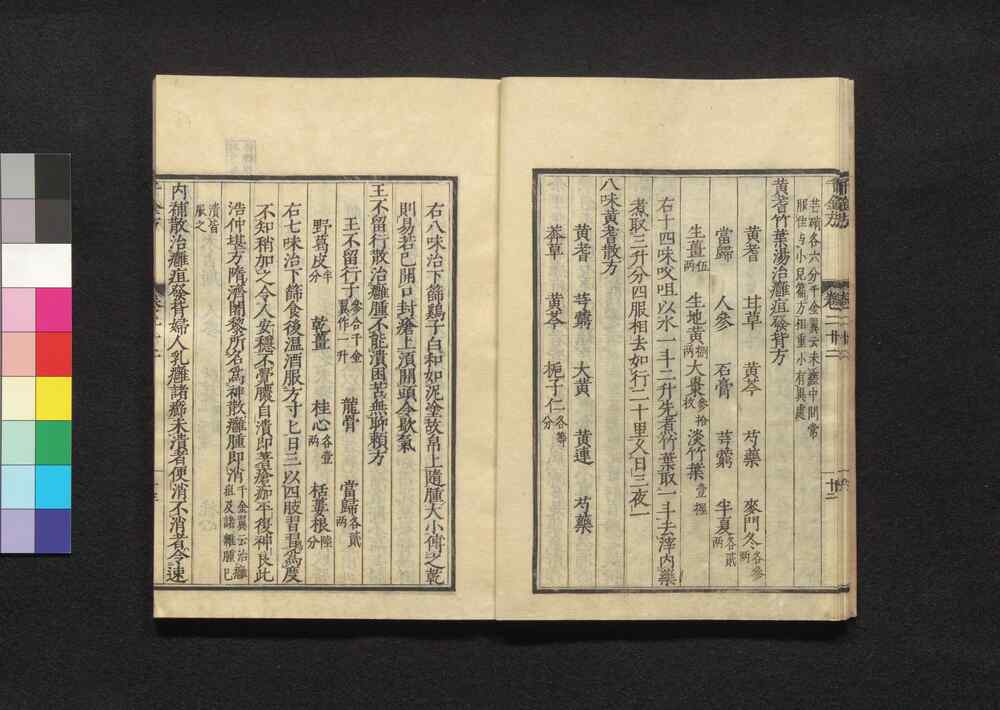 苦碩各六分千金翼云未蠶中間常
服佳与小兒篇方相重小有異處
黃耆竹葉湯治癰疽發背方
黃耆 甘草 黃芩 芍藥 麥門冬各參兩
當歸 人參 石膏 芎藭 半夏各貳兩
生薑伍兩 生地黃捌兩 大棗參拾枚 淡竹葉壹握
右十四味㕮咀以水一斗二升先煮竹葉取一斗去滓內藥
煮取三升分四服相去如行二十里又日三夜一
八味黃耆散方
黃耆 芎藭 大黃 黃連 芍藥
莽草 黃芩 梔子仁各等分
右八味治下篩雞子白和如泥塗故帛上隨腫大小傅之乾
則易若已開口封瘡上須開頭令歇氣
王不留行散治癰腫不能潰困苦無聊賴方
王不留行子參合千金翼作一升 龍骨 當歸各貳兩
野葛皮半分 乾薑 桂心各壹兩 栝蔞根陸分
右七味治下篩食後溫酒服方寸匕日三以四肢習習為度
不知稍加之令人安穩不覺膿自潰即著瘡痂平復神良此
浩仲堪方隋濟闍黎所名為神散癰腫即消千金翼云治癰疽及諸雜腫已
潰皆服之
內補散治癰疽發背婦人乳癰諸癤未潰者便消不消者令速